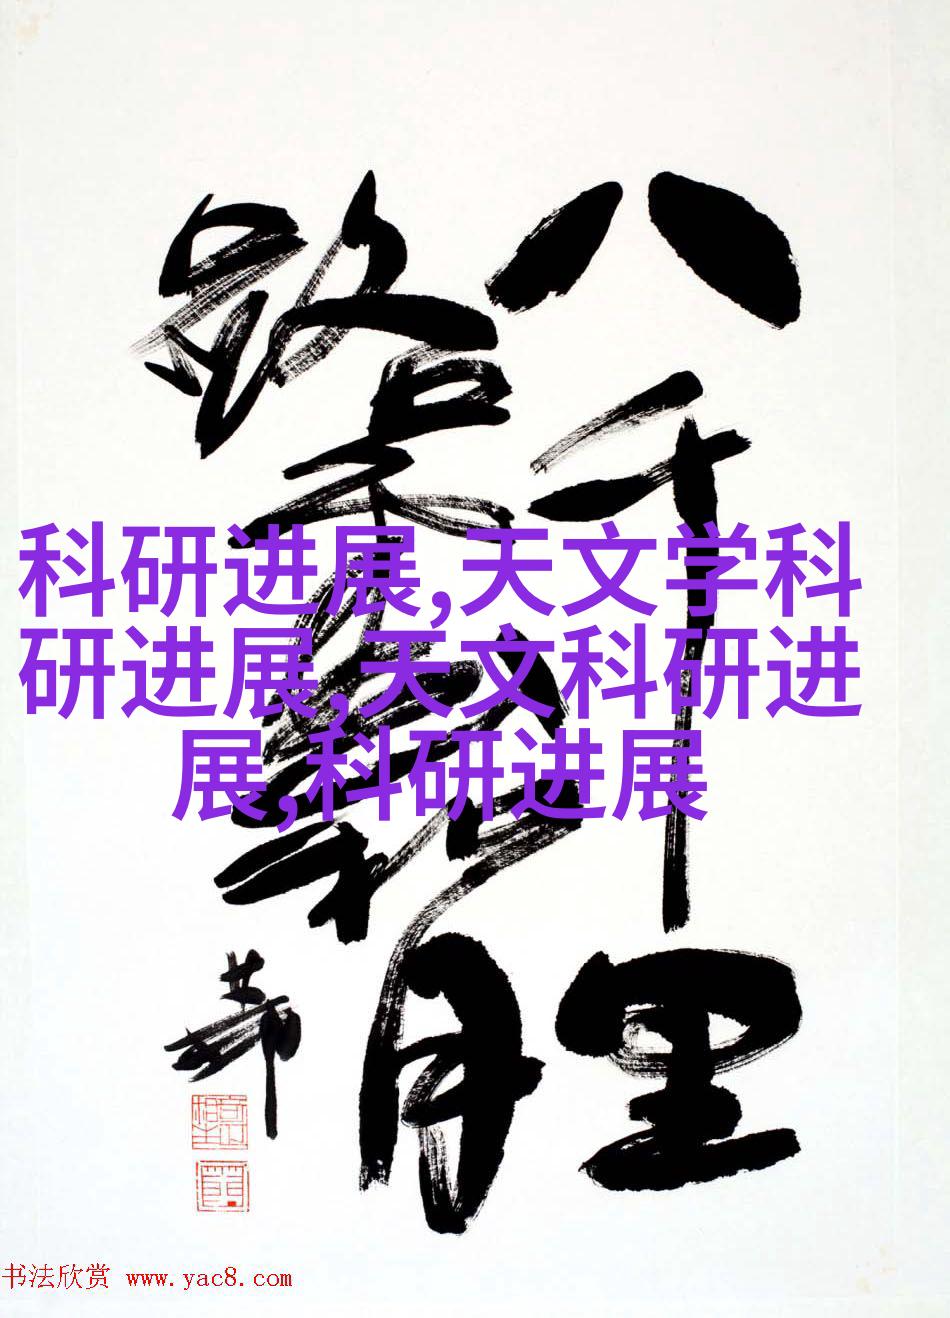 八千里
路雲和月
科研进展,天文学科
研进展,天文科研进
展,科研进展
书法欣赏 www.yac8.com